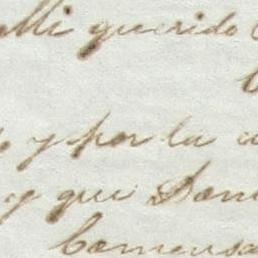 Mi querido
y por la
y que Dan
Comensa